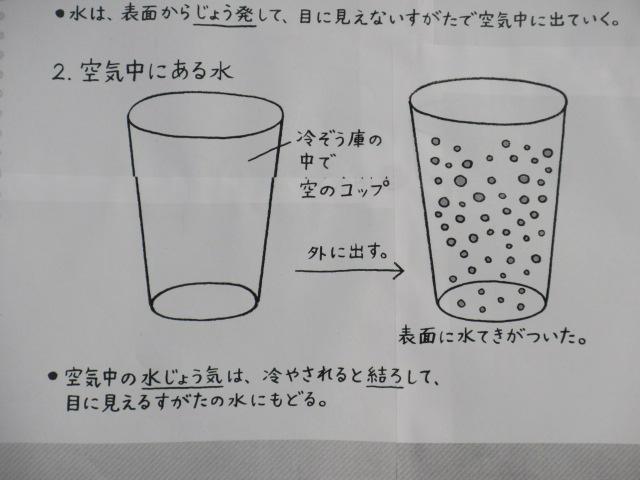 ●水は、表面からじょう発して、目に見えないすがたで空気中に出ていく。
2. 空気中にある水
冷ぞう庫の
中で
空のコップ
外に出す。
表面に水てきがついた。
●空気中の水じょう気は、冷やされると結ろして、
目に見えるすがたの水にもどる。